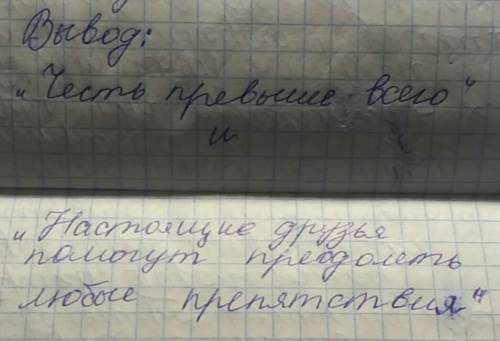 Вывод:
„Честь превыше всего"
и
„Настоящие друзья
помогут преодолеть
любые препятствия"